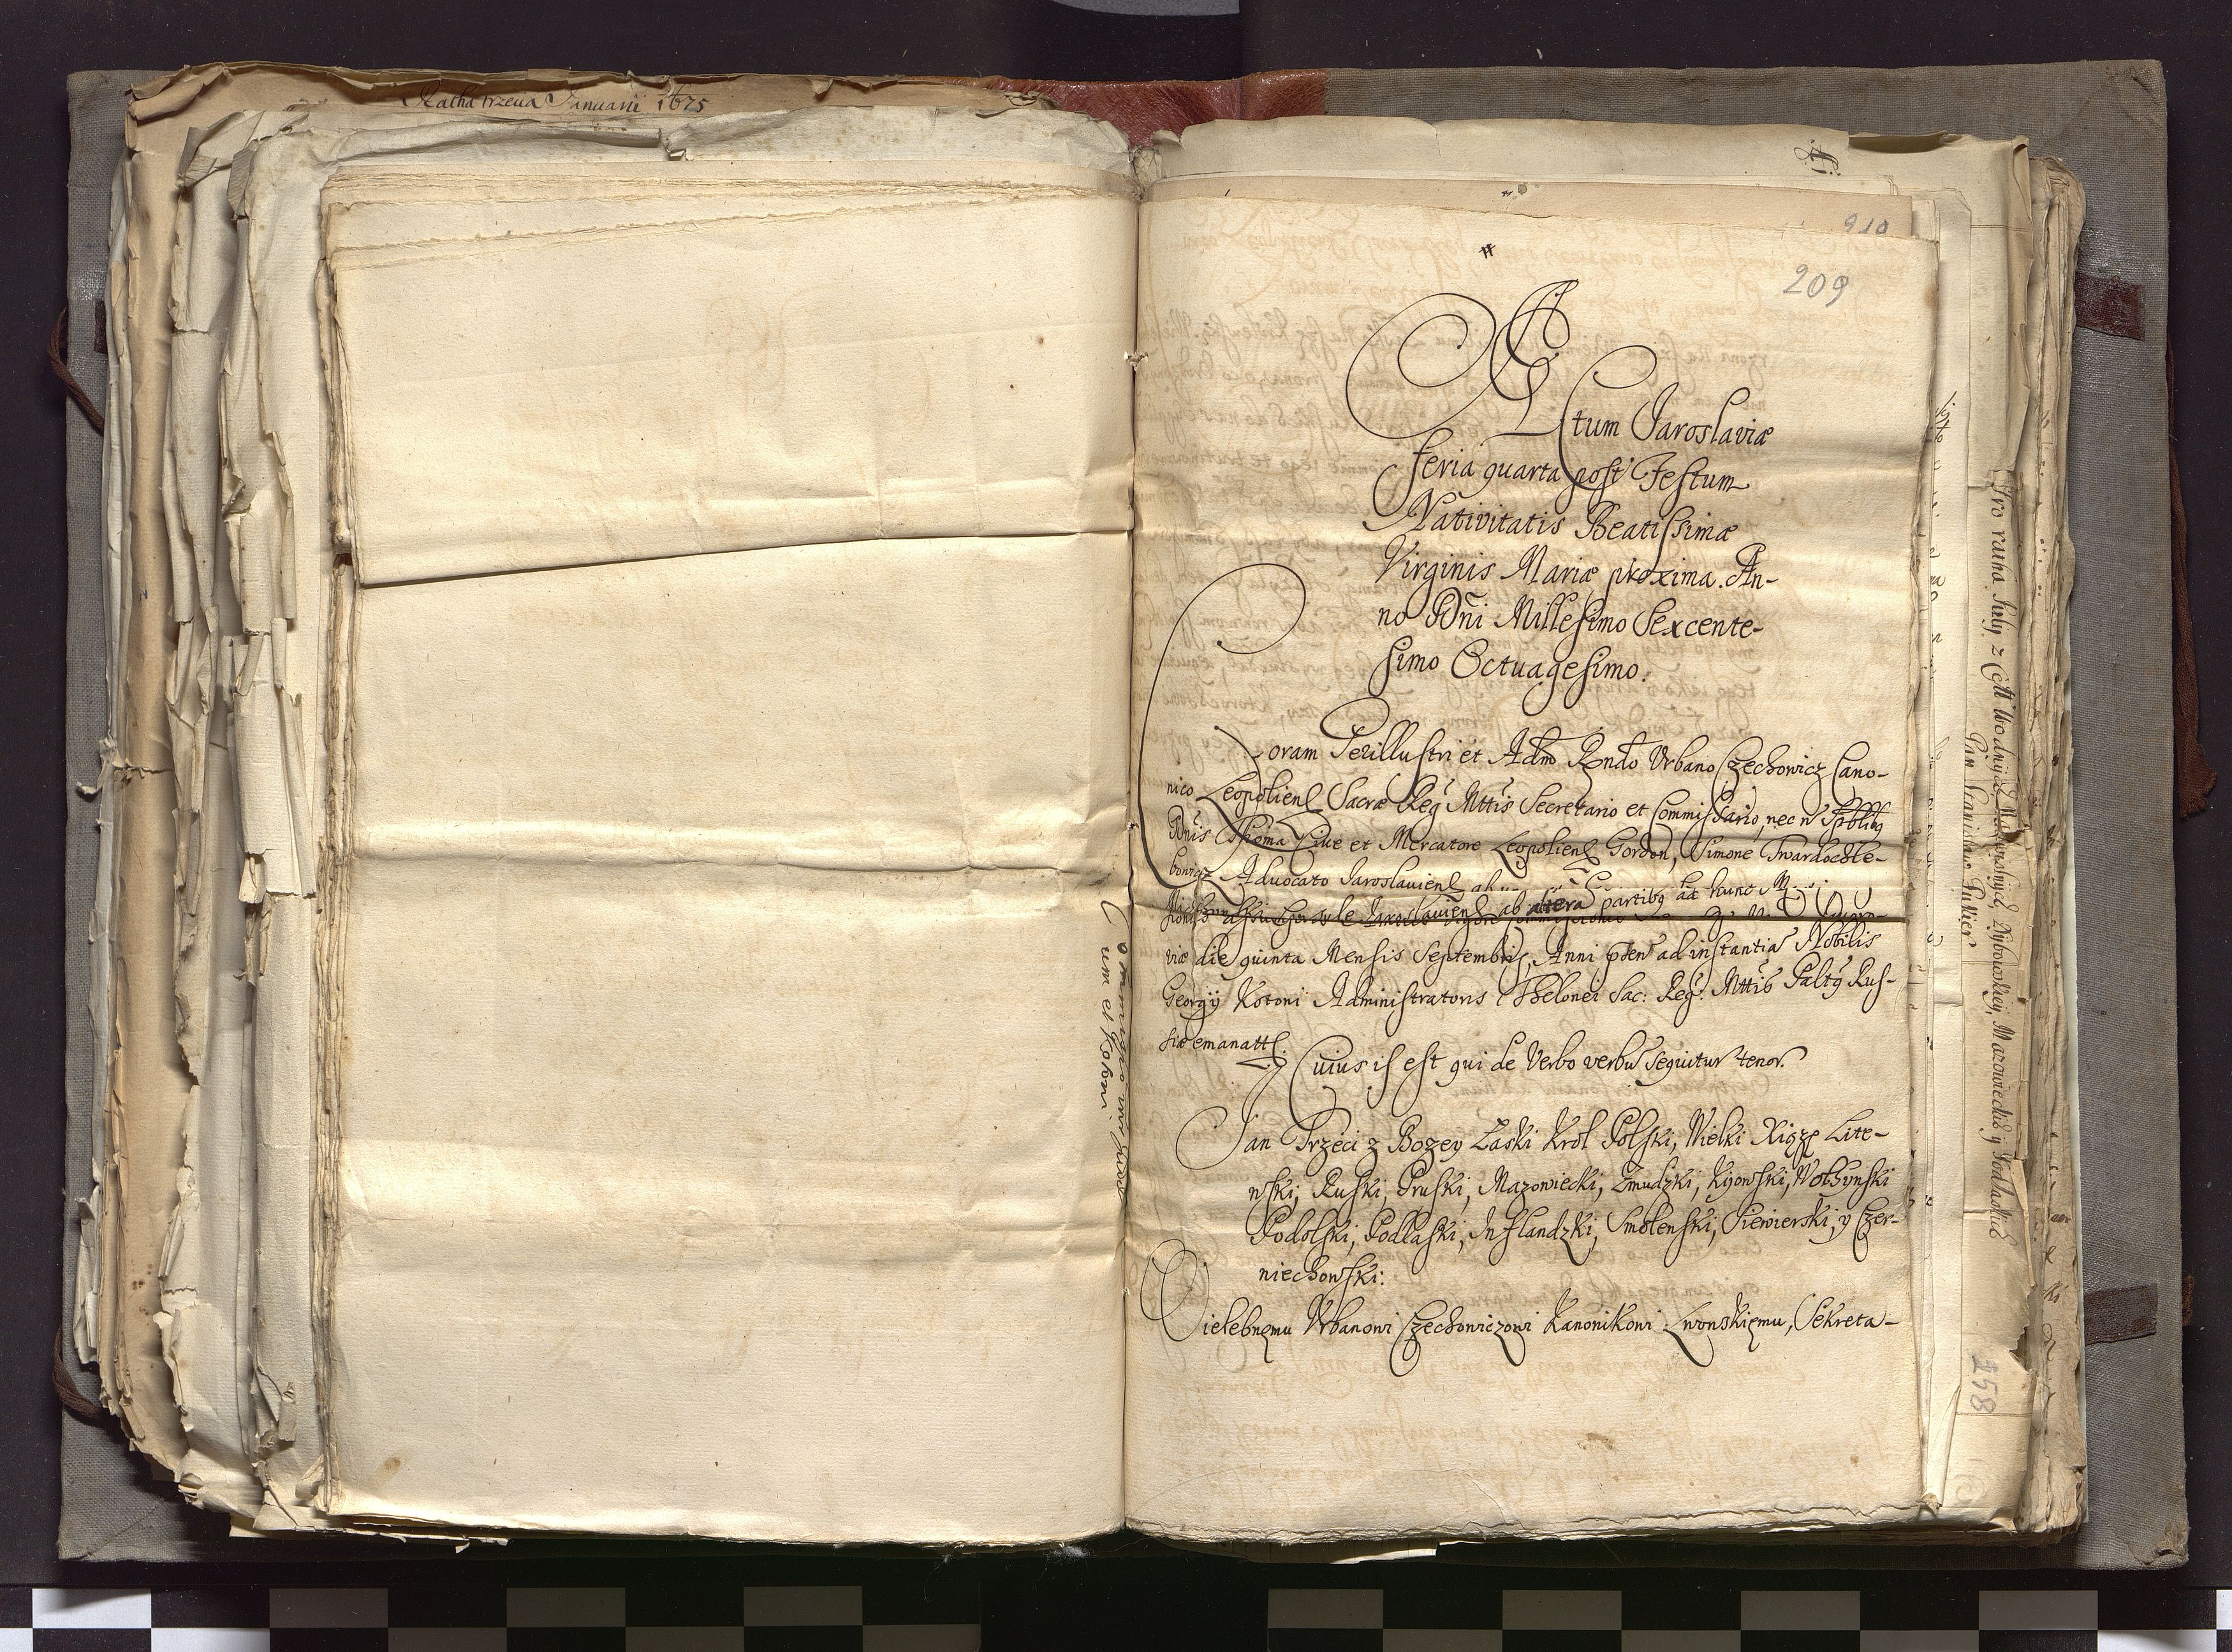 Ratha trzecia Januarii 1675
910
209
ACtum Jaroslaviæ
feria quarta post Festum
Nativitatis Beatissimæ
Virginis Mariæ proxima. An-
no Dñi Millesimo Sexcente-
simo Octuagesimo.
Coram Perillustri et Admo Rndo Urbano Czechowicz Cano-
nico Leopolien Sacræ Reg Mttis Secretario et Commissario, nec n Spblibg
Dnis Thoma Ciue et Mercatore Leopolien Gordon, Simone
Aduocato Jaroslauien
ab altera partibg ad hunc
viæ die quinta Mensis Septembris, Anni pñen ad instantia Nobilis
Georgÿ Kotoni Administratoris Thelonei Sac: Reg: Mttis Paltÿ Rus-
siæ emanatt
Cuius is est qui de Verbo verbu sequitur tenor.
Jan Trzeci z Bozey Łaski Krol Polski, Wielki Xiąze Lite-
wski, Ruski, Pruski, Mazowiecki, Zmudzki, Kijowski, Wołhynski
Podolski, Podlaski, Inflandzki, Smolenski, Siewierski, y Czer-
niechowski:
Wielebnęmu Urbanowi Czechowiczowi Kanonikowi Lwowskięmu, Sekreta-
um et Kotoni
Pro ratha July z
Mazowieckiey y Podlaskiey
Pan Stanisław
258